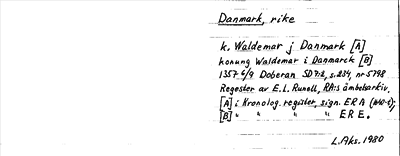 Danmark, rike
k. Waldemar j Danmark [A]
konung Waldemar i Danmarck [B]
1357 6/9 Doberan SD 7:2, s. 234, nr 5798
Regester av E.L. Runell, RA:s ämbetsarkiv.
[A] i Kronolog. register, sign. ERA
[B] " " " " ERE.
L.Aks. 1980